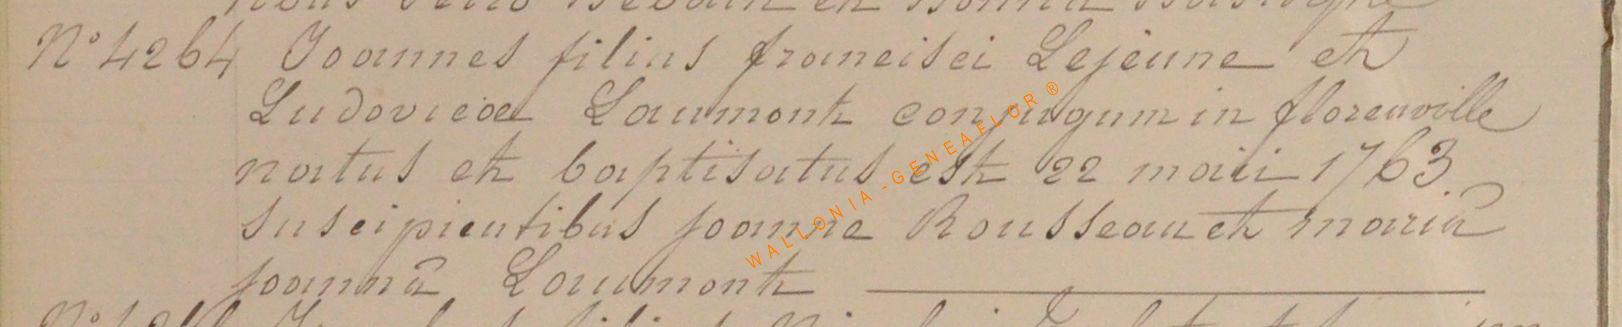 N° 4264 Joannes filius francisci Lejeune et
Ludovicæ Laumont conjugum in florenville
natus et baptisatus est 22 maii 1763.
suscipientibus joanne Rousseau et mariâ
joannâ Laumont
WALLONIA-GENEAFLOR ®